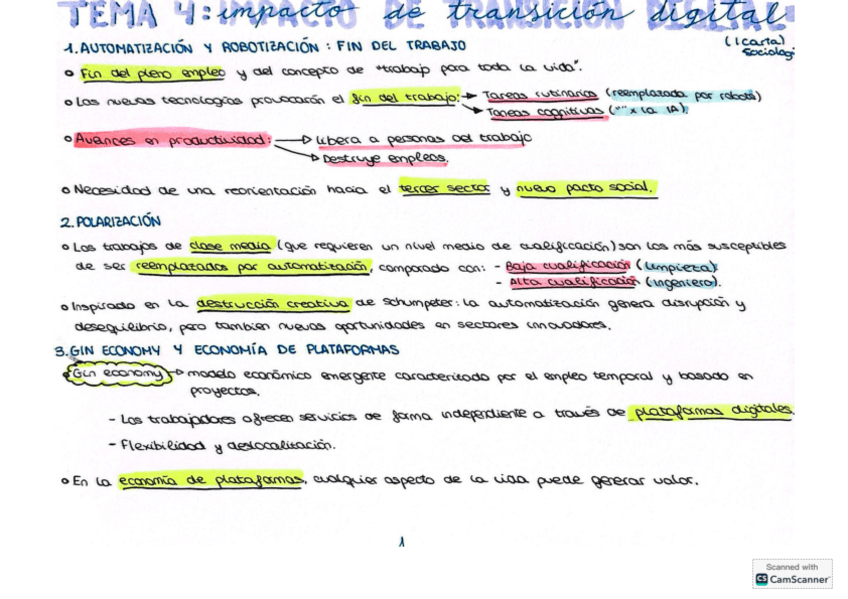 TEMA 4: impacto de transición digital
1. AUTOMATIZACIÓN Y ROBOTIZACIÓN: FIN DEL TRABAJO
(1 carta)
Sociolog
Fin del pleno empleo y del concepto de "trabajo para toda la vida".
Las nuevas tecnologías provocarán el fin del trabajo: → Tareas rutinarias (reemplazada por robots)
→ Tareas cognitivas ("" x la IA).
Avances en productividad: → Libera a personas del trabajo
→ Destruye empleos.
Necesidad de una reorientación hacia el tercer sector y nuevo pacto social.
2. POLARIZACIÓN
Los trabajos de clase media (que requieren un nivel medio de cualificación) son los más susceptibles
de ser reemplazados por automatización, comparado con: - Baja cualificación (limpieza)
- Alta cualificación (ingeniero).
Inspirado en la destrucción creativa de Schumpeter: la automatización genera disrupción y
desequilibrio, pero tambien nuevas oportunidades en sectores innovadores.
3. GIN ECONOMY Y ECONOMÍA DE PLATAFORMAS
Gin economy → modelo económico emergente caracterizado por el empleo temporal y basado en
proyectos.
- Los trabajadores ofrecen servicios de forma independiente a través de plataformas digitales.
- Flexibilidad y deslocalización.
En la economía de plataformas, cualquier aspecto de la vida puede generar valor.
1
Scanned with
CS CamScanner